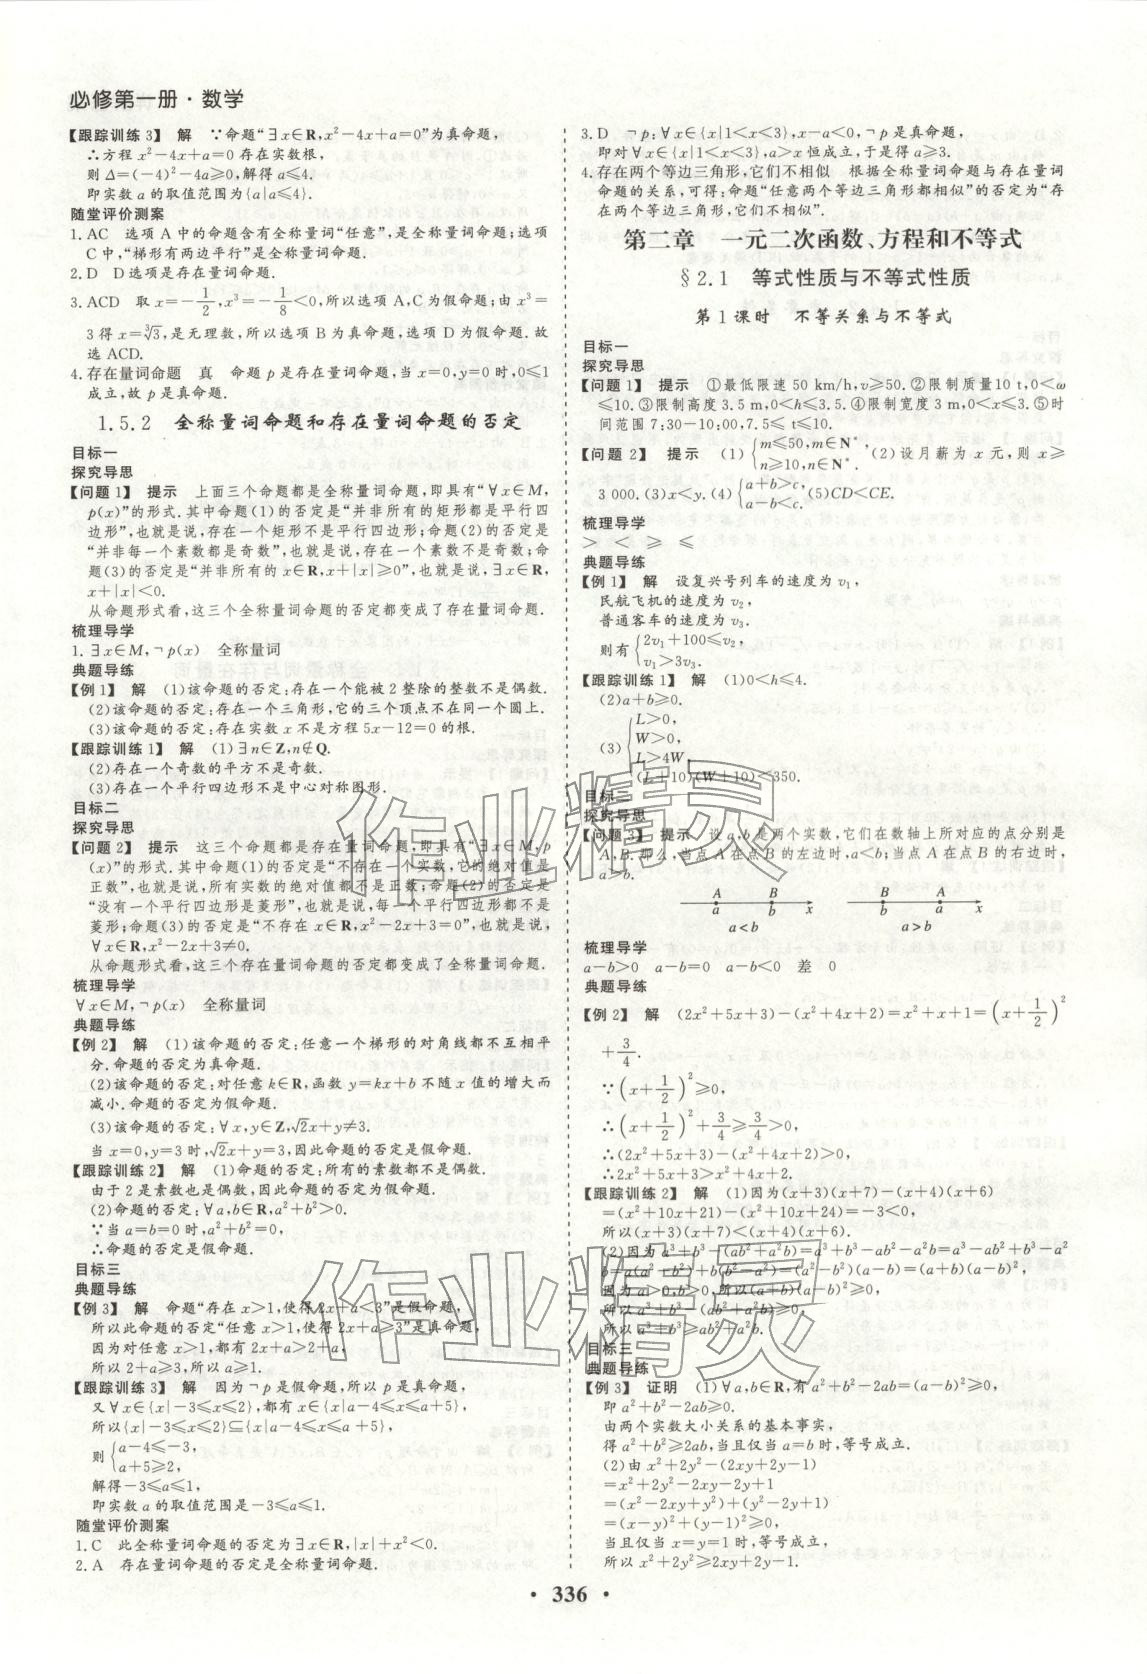 必修第一册·数学
【跟踪训练3】 解 ∵命题“∃x∈R,x²－4x+a=0”为真命题,
∴方程 x²－4x+a=0 存在实数根,
则 Δ=(－4)²－4a≥0,解得 a≤4.
即实数 a 的取值范围为{a|a≤4}.
随堂评价测案
1. AC 选项 A 中的命题含有全称量词“任意”,是全称量词命题;选项
C 中,“梯形有两边平行”是全称量词命题.
2. D D 选项是存在量词命题.
3. ACD 取 x=－1/2,x³=－1/8<0,所以选项 A,C 为假命题;由 x³=
3 得 x=∛3,是无理数,所以选项 B 为真命题,选项 D 为假命题.故
选 ACD.
4. 存在量词命题 真 命题 p 是存在量词命题,当 x=0,y=0 时,0≤1
成立,故 p 为真命题.
1.5.2 全称量词命题和存在量词命题的否定
目标一
探究导思
【问题1】 提示 上面三个命题都是全称量词命题,即具有“∀x∈M,
p(x)”的形式.其中命题(1)的否定是“并非所有的矩形都是平行四
边形”,也就是说,存在一个矩形不是平行四边形;命题(2)的否定是
“并非每一个素数都是奇数”,也就是说,存在一个素数不是奇数;命
题(3)的否定是“并非所有的 x∈R,x+|x|≥0”,也就是说,∃x∈R,
x+|x|<0.
从命题形式看,这三个全称量词命题的否定都变成了存在量词命题.
梳理导学
1. ∃x∈M,¬p(x) 全称量词
典题导练
【例1】 解 (1)该命题的否定:存在一个能被 2 整除的整数不是偶数.
(2)该命题的否定:存在一个三角形,它的三个顶点不在同一个圆上.
(3)该命题的否定:存在实数 x 不是方程 5x－12=0 的根.
【跟踪训练1】 解 (1)∃n∈Z,n∉Q.
(2)存在一个奇数的平方不是奇数.
(3)存在一个平行四边形不是中心对称图形.
目标二
探究导思
【问题2】 提示 这三个命题都是存在量词命题,即具有“∃x∈M,p
(x)”的形式.其中命题(1)的否定是“不存在一个实数,它的绝对值是
正数”,也就是说,所有实数的绝对值都不是正数;命题(2)的否定是
“没有一个平行四边形是菱形”,也就是说,每一个平行四边形都不是
菱形;命题(3)的否定是“不存在 x∈R,x²－2x+3=0”,也就是说,
∀x∈R,x²－2x+3≠0.
从命题形式看,这三个存在量词命题的否定都变成了全称量词命题.
梳理导学
∀x∈M,¬p(x) 全称量词
典题导练
【例2】 解 (1)该命题的否定:任意一个梯形的对角线都不互相平
分.命题的否定为真命题.
(2)该命题的否定:对任意 k∈R,函数 y=kx+b 不随 x 值的增大而
减小.命题的否定为假命题.
(3)该命题的否定:∀x,y∈Z,√2x+y≠3.
当 x=0,y=3 时,√2x+y=3,因此命题的否定是假命题.
【跟踪训练2】 解 (1)命题的否定:所有的素数都不是偶数.
由于 2 是素数也是偶数,因此命题的否定为假命题.
(2)命题的否定:∀a,b∈R,a²+b²>0.
∵当 a=b=0 时,a²+b²=0,
∴命题的否定是假命题.
目标三
典题导练
【例3】 解 命题“存在 x>1,使得 2x+a<3”是假命题,
所以此命题的否定“任意 x>1,使得 2x+a≥3”是真命题,
因为对任意 x>1,都有 2x+a>2+a,
所以 2+a≥3,所以 a≥1.
【跟踪训练3】 解 因为¬p 是假命题,所以 p 是真命题,
又∀x∈{x|－3≤x≤2},都有 x∈{x|a－4≤x≤a+5},
所以{x|－3≤x≤2}⊆{x|a－4≤x≤a+5},
则{a－4≤－3,
a+5≥2,
解得－3≤a≤1,
即实数 a 的取值范围是－3≤a≤1.
随堂评价测案
1. C 此全称量词命题的否定为∃x∈R,|x|+x²<0.
2. A 存在量词命题的否定是全称量词命题.
3. D ¬p:∀x∈{x|1<x<3},x－a<0,¬p 是真命题,
即对∀x∈{x|1<x<3},a>x 恒成立,于是得 a≥3.
4. 存在两个等边三角形,它们不相似 根据全称量词命题与存在量词
命题的关系,可得:命题“任意两个等边三角形都相似”的否定为“存
在两个等边三角形,它们不相似”.
第二章 一元二次函数、方程和不等式
§2.1 等式性质与不等式性质
第1课时 不等关系与不等式
目标一
探究导思
【问题1】 提示 ①最低限速 50 km/h,v≥50.②限制质量10 t,0<ω
≤10.③限制高度 3.5 m,0<h≤3.5.④限制宽度 3 m,0<a≤3.⑤时
间范围 7:30－10:00,7.5≤t≤10.
【问题2】 提示 (1){m≤50,m∈N*, n≥10,n∈N*.(2)设月薪为 x 元,则 x≥
3 000.(3)x<y.(4){a+b>c, a－b<c.(5)CD<CE.
梳理导学
> < ≥ ≤
典题导练
【例1】 解 设复兴号列车的速度为 v₁,
民航飞机的速度为 v₂,
普通客车的速度为 v₃.
则有{2v₁+100≤v₂,
v₁>3v₃.
【跟踪训练1】 解 (1)0<h≤4.
(2)a+b≥0.
(3){L>0,
W>0,
L>4W,
(L+10)(W+10)<350.
目标二
探究导思
【问题3】 提示 设 a,b 是两个实数,它们在数轴上所对应的点分别是
A,B.那么,当点 A 在点 B 的左边时,a<b;当点 A 在点 B 的右边时,
a>b.
A B B A
a b x b a x
a<b a>b
梳理导学
a－b>0 a－b=0 a－b<0 差 0
典题导练
【例2】 解 (2x²+5x+3)－(x²+4x+2)=x²+x+1=(x+1/2)²
+3/4.
∵(x+1/2)²≥0,
∴(x+1/2)²+3/4≥3/4>0,
∴(2x²+5x+3)－(x²+4x+2)>0,
∴2x²+5x+3>x²+4x+2.
【跟踪训练2】 解 (1)因为(x+3)(x+7)－(x+4)(x+6)
=(x²+10x+21)－(x²+10x+24)=－3<0,
所以(x+3)(x+7)<(x+4)(x+6).
(2)因为 a³+b³－(ab²+a²b)=a³+b³－ab²－a²b=a³－ab²+b³－a²
b=a(a²－b²)+b(b²－a²)=(a²－b²)(a－b)=(a－b)²(a+b),
因为 a>0,b>0,所以(a+b)(a－b)²≥0,
所以 a³+b³－(ab²+a²b)≥0,
所以 a³+b³≥ab²+a²b.
目标三
典题导练
【例3】 证明 (1)∀a,b∈R,有 a²+b²－2ab=(a－b)²≥0,
即 a²+b²－2ab≥0.
由两个实数大小关系的基本事实,
得 a²+b²≥2ab,当且仅当 a=b 时,等号成立.
(2)由 x²+2y²－(2xy+2y－1)
=x²+2y²－2xy－2y+1
=(x²－2xy+y²)+(y²－2y+1)
=(x－y)²+(y－1)²≥0,
当且仅当 x=y=1 时,等号成立,
所以 x²+2y²≥2xy+2y－1.
· 336 ·
作业精灵
作业精灵